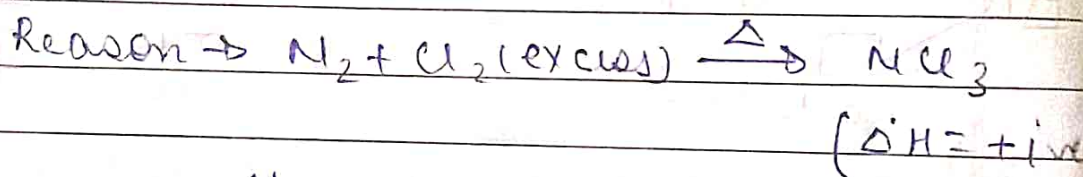 Reason → N₂ + Cl₂ (excess) —Δ→ NCl₃
(ΔH = +ive